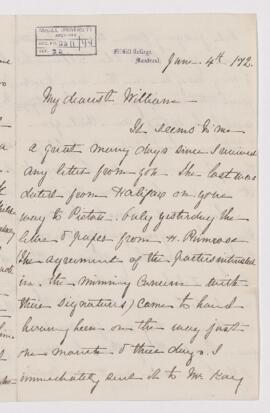 McGILL UNIVERSITY
ARCHIVES
ACC. NO. 2211
REF. 22
McGill College,
Montreal,
June 4th 1/72.
My dearest William—
It seems to me
a great many days since I received
any letter from you. The last was
dated from Halifax on your
way to Pictou. Only yesterday the
letter & papers from H. Primrose
(the agreement of the parties interested
in the mining concern with
their signatures) came to hand
having been on the way just
one month & three days. I
immediately sent it to Mr Kay